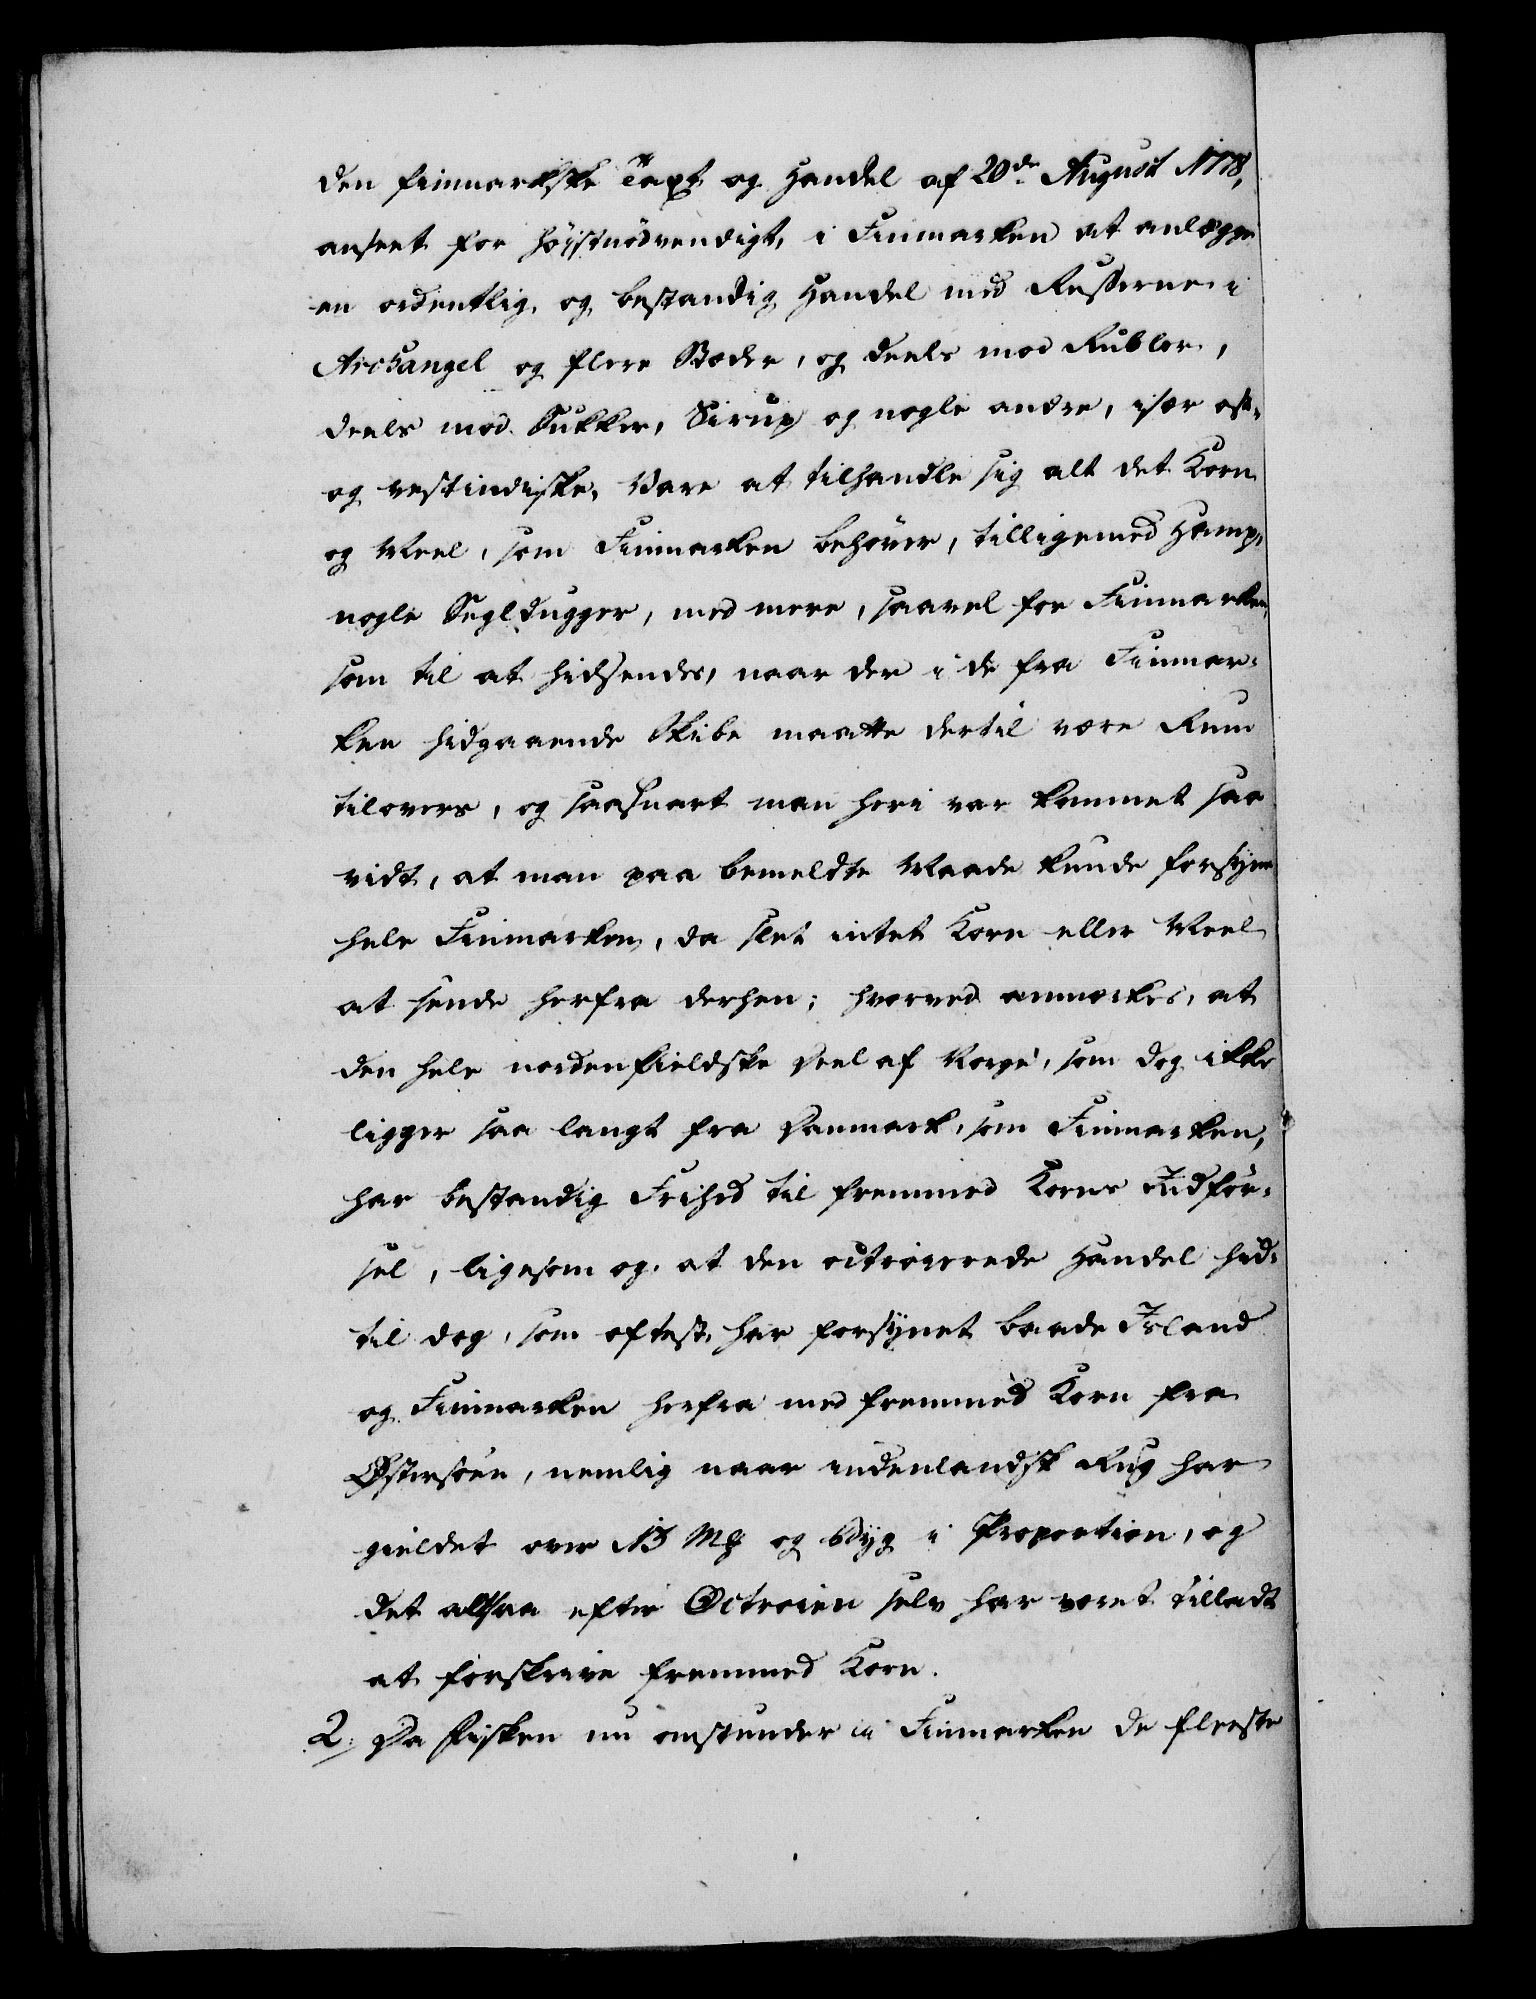 den finmarkske Taxt og Handel af 20de August 1778,
anseet for høystnödvendigt, i Finmarken at anlægge
en ordentlig og bestandig Handel med Russerne i
Archangel og flere Stæder, og deels mod Rubler,
deels mod Sukker, Sirup og nogle andre, især ost-
og vestindiske, Vare at tilhandle sig alt det Korn
og Meel, som Finmarken behøver, tilligemed Hamp,
nogle Segldugger, med mere, saavel for Finmarken,
som til at hidsendes, naar der i de fra Finmar-
ken hidgaaende Skibe maatte dertil være Rum
tilovers, og saasnart man heri var kommet saa
vidt, at man paa bemeldte Maade kunde forsyne
hele Finmarken, da slet intet Korn eller Meel
at sende herfra derhen; hvorved anmærkes, at
den hele nordenfieldske Deel af Norge, som dog ikke
ligger saa langt fra Danmark, som Finmarken,
har bestandig Frihed til fremmed Korns Indför-
sel, ligesom og, at den octroierede Handel hid-
til dog, som oftest, har forsynet baade Island
og Finmarken herfra med fremmed Korn fra
Østersöen, nemlig naar indenlandsk Rug har
gieldet over 13 Mk og Byg i Proportion, og
det altsaa efter Octroien selv har været tilladt
at forskrive fremmed Korn.
2. Da Fisken nu omstunder i Finmarken de fleeste